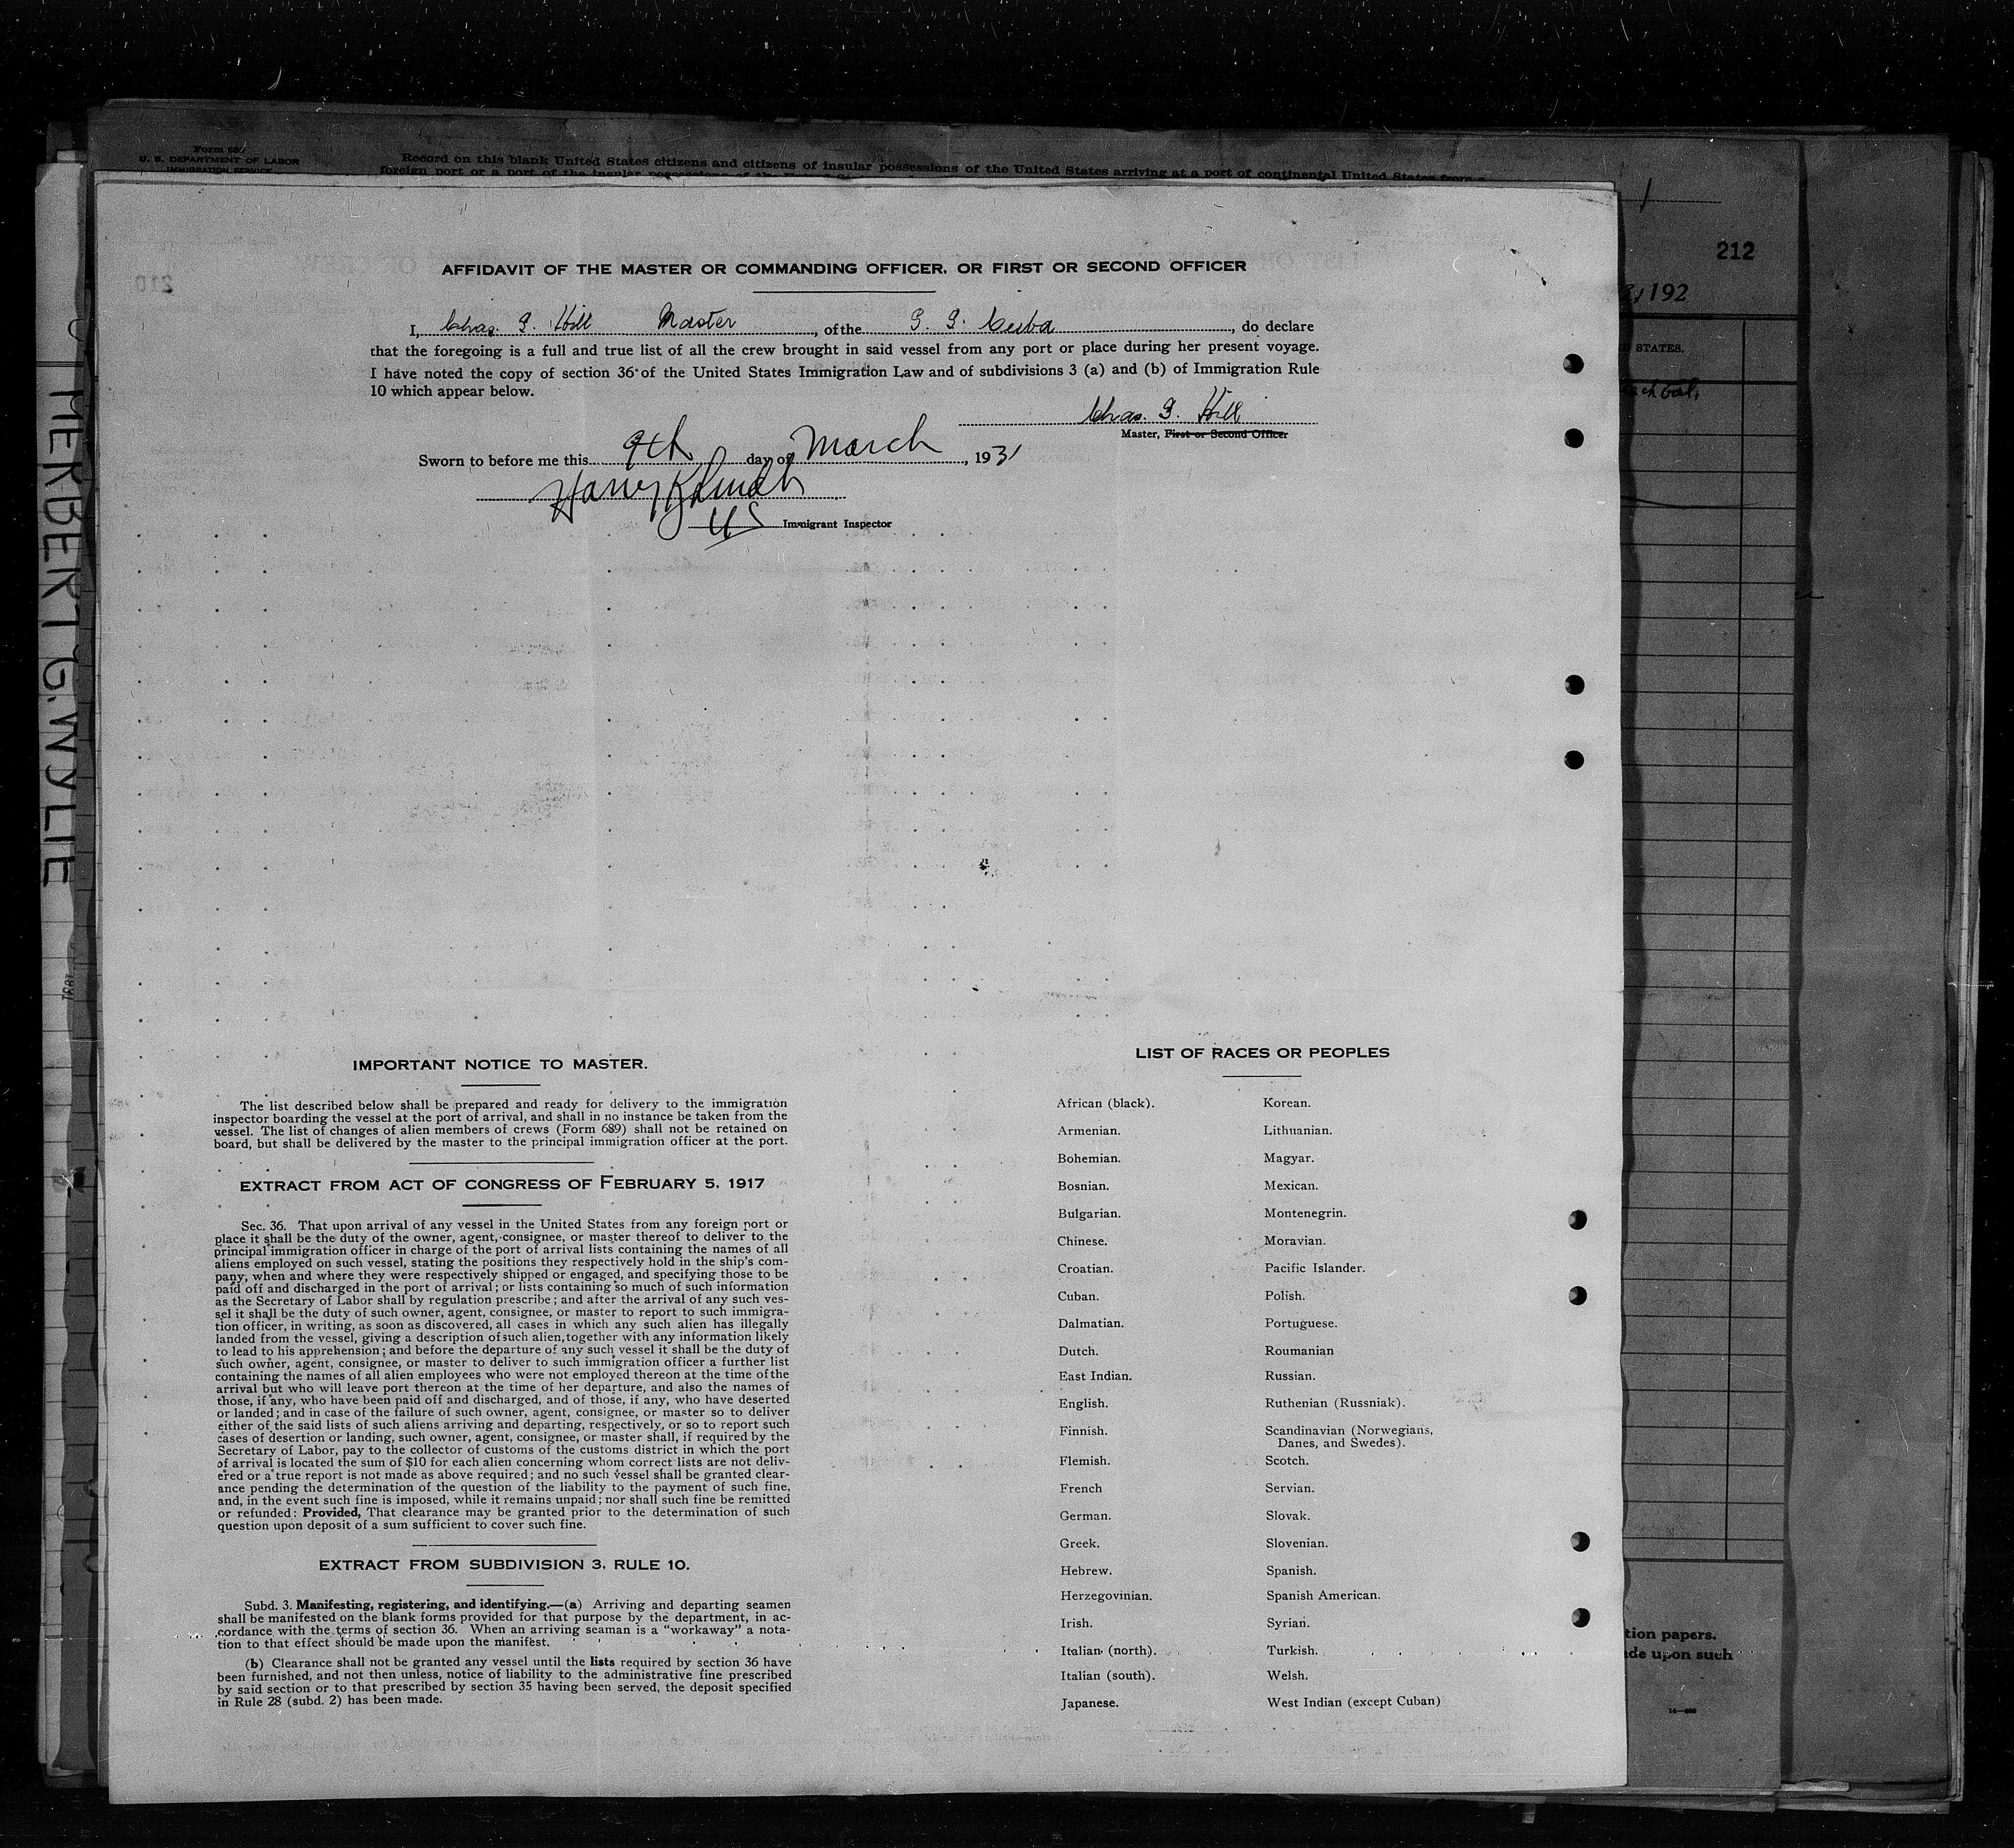 Form 689
U. S. DEPARTMENT OF LABOR
IMMIGRATION SERVICE
Record on this blank United States citizens and citizens of insular possessions of the United States arriving at a port of continental United States from a
foreign port or a port of the insular possessions of the
212
192
STATES.
210
HERBERT G. WYLIE
AFFIDAVIT OF THE MASTER OR COMMANDING OFFICER, OR FIRST OR SECOND OFFICER
I, Chas. S. Hill Master, of the S. S. Cuba, do declare
that the foregoing is a full and true list of all the crew brought in said vessel from any port or place during her present voyage.
I have noted the copy of section 36 of the United States Immigration Law and of subdivisions 3 (a) and (b) of Immigration Rule
10 which appear below.
Chas. S. Hill
Master, First or Second Officer
Sworn to before me this 9th day of March, 1931
Harvey
US Immigrant Inspector
IMPORTANT NOTICE TO MASTER.
The list described below shall be prepared and ready for delivery to the immigration
inspector boarding the vessel at the port of arrival, and shall in no instance be taken from the
vessel. The list of changes of alien members of crews (Form 689) shall not be retained on
board, but shall be delivered by the master to the principal immigration officer at the port.
EXTRACT FROM ACT OF CONGRESS OF FEBRUARY 5, 1917
Sec. 36. That upon arrival of any vessel in the United States from any foreign port or
place it shall be the duty of the owner, agent, consignee, or master thereof to deliver to the
principal immigration officer in charge of the port of arrival lists containing the names of all
aliens employed on such vessel, stating the positions they respectively hold in the ship's com-
pany, when and where they were respectively shipped or engaged, and specifying those to be
paid off and discharged in the port of arrival; or lists containing so much of such information
as the Secretary of Labor shall by regulation prescribe; and after the arrival of any such ves-
sel it shall be the duty of such owner, agent, consignee, or master to report to such immigra-
tion officer, in writing, as soon as discovered, all cases in which any such alien has illegally
landed from the vessel, giving a description of such alien, together with any information likely
to lead to his apprehension; and before the departure of any such vessel it shall be the duty of
such owner, agent, consignee, or master to deliver to such immigration officer a further list
containing the names of all alien employees who were not employed thereon at the time of the
arrival but who will leave port thereon at the time of her departure, and also the names of
those, if any, who have been paid off and discharged, and of those, if any, who have deserted
or landed; and in case of the failure of such owner, agent, consignee, or master so to deliver
either of the said lists of such aliens arriving and departing, respectively, or so to report such
cases of desertion or landing, such owner, agent, consignee, or master shall, if required by the
Secretary of Labor, pay to the collector of customs of the customs district in which the port
of arrival is located the sum of $10 for each alien concerning whom correct lists are not deliv-
ered or a true report is not made as above required; and no such vessel shall be granted clear-
ance pending the determination of the question of the liability to the payment of such fine,
and, in the event such fine is imposed, while it remains unpaid; nor shall such fine be remitted
or refunded: Provided, That clearance may be granted prior to the determination of such
question upon deposit of a sum sufficient to cover such fine.
EXTRACT FROM SUBDIVISION 3, RULE 10.
Subd. 3. Manifesting, registering, and identifying.—(a) Arriving and departing seamen
shall be manifested on the blank forms provided for that purpose by the department, in ac-
cordance with the terms of section 36. When an arriving seaman is a "workaway" a nota-
tion to that effect should be made upon the manifest.
(b) Clearance shall not be granted any vessel until the lists required by section 36 have
been furnished, and not then unless, notice of liability to the administrative fine prescribed
by said section or to that prescribed by section 35 having been served, the deposit specified
in Rule 28 (subd. 2) has been made.
LIST OF RACES OR PEOPLES
African (black). Korean.
Armenian. Lithuanian.
Bohemian. Magyar.
Bosnian. Mexican.
Bulgarian. Montenegrin.
Chinese. Moravian.
Croatian. Pacific Islander.
Cuban. Polish.
Dalmatian. Portuguese.
Dutch. Roumanian
East Indian. Russian.
English. Ruthenian (Russniak).
Finnish. Scandinavian (Norwegians,
Danes, and Swedes).
Flemish. Scotch.
French Servian.
German. Slovak.
Greek. Slovenian.
Hebrew. Spanish.
Herzegovinian. Spanish American.
Irish. Syrian.
Italian (north). Turkish.
Italian (south). Welsh.
Japanese. West Indian (except Cuban)
tion papers.
de upon such